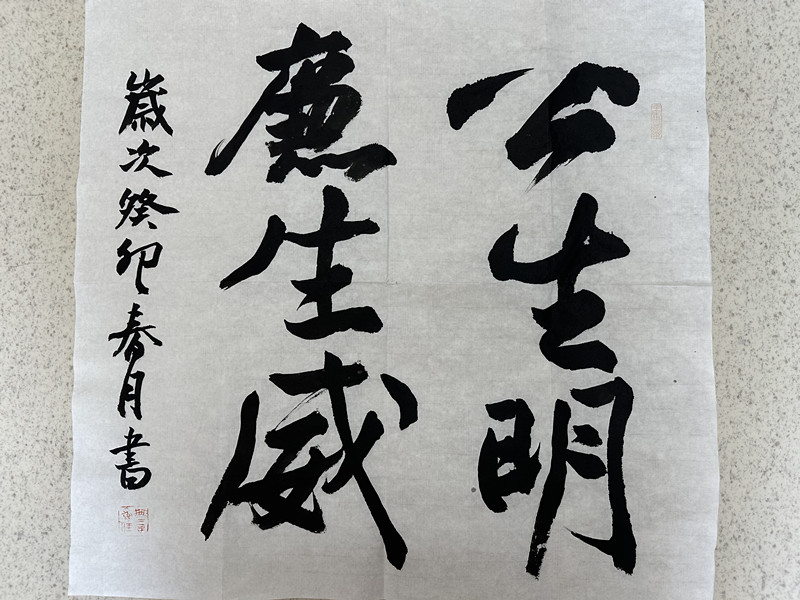 公生明
廉生威
歲次癸卯春月書